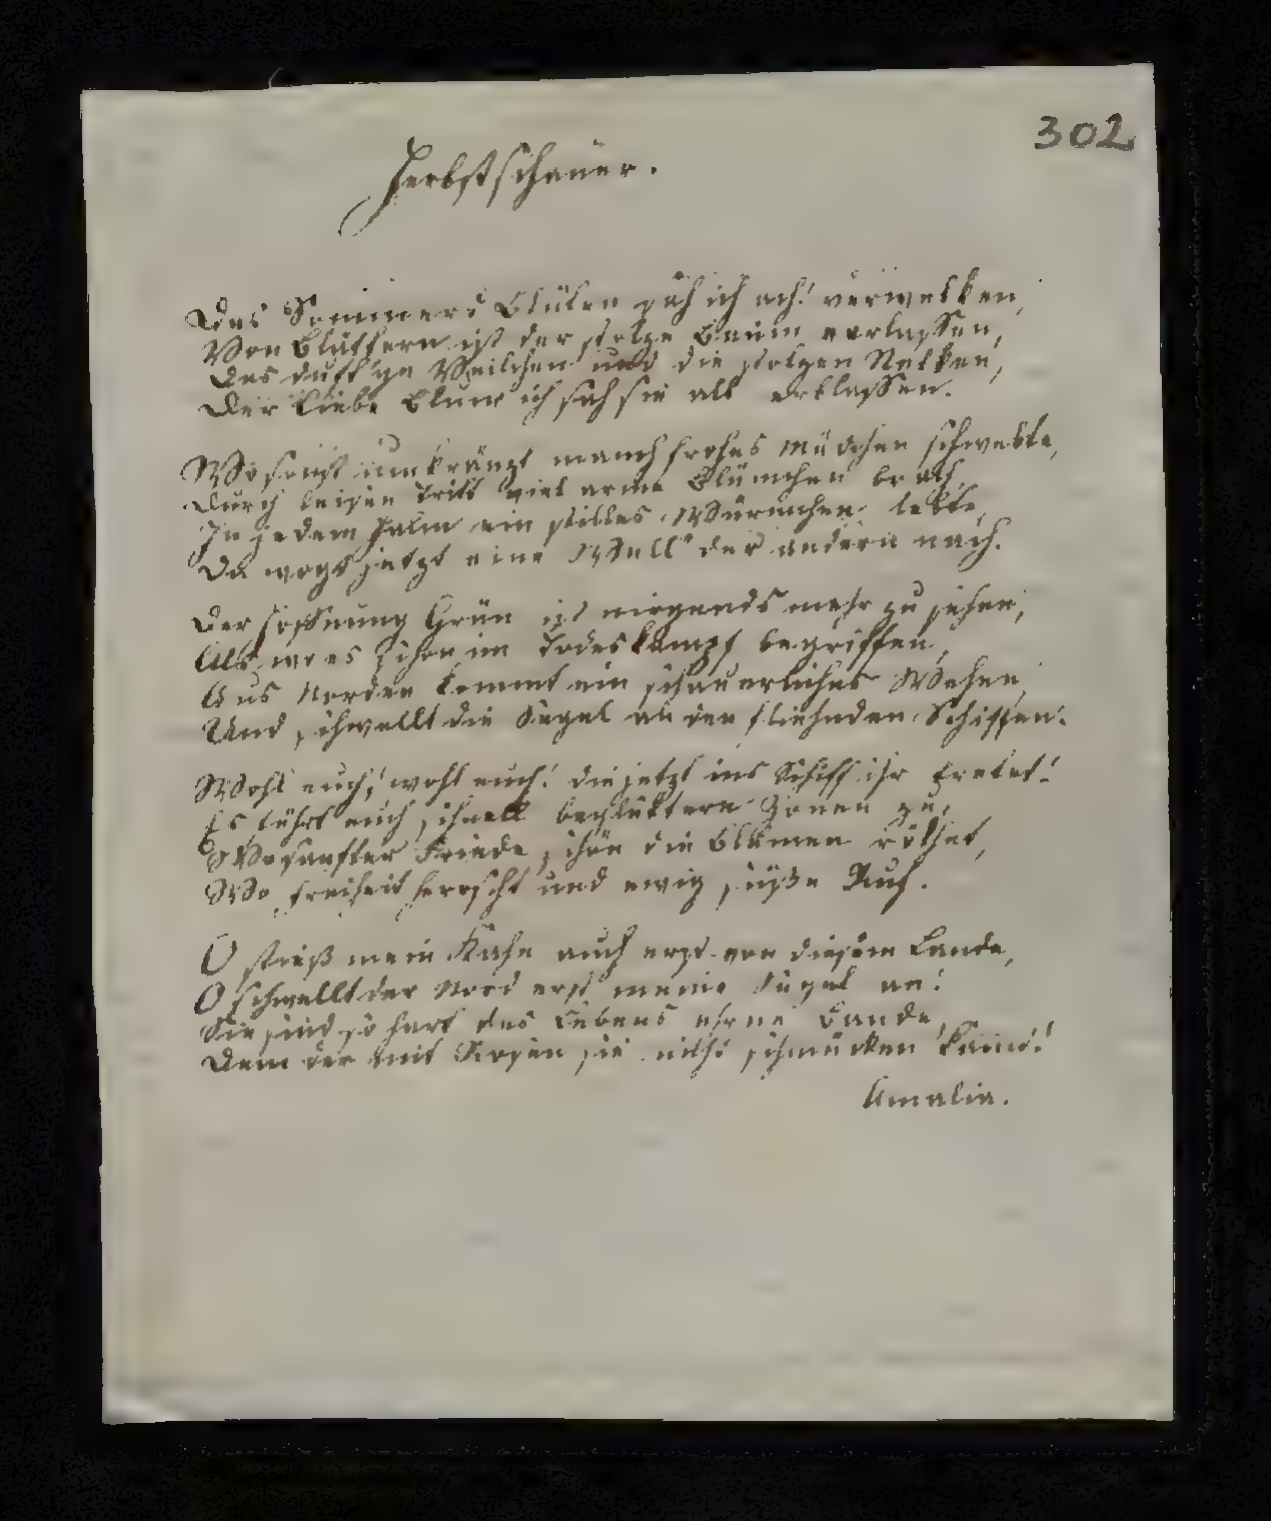 302
Herbstschauer.
Des Sommers Blüten sah ich ach! verwelken,
Von Blättern ist der stolze Baum verlassen,
Das duft'ge Veilchen und die stolzen Nelken,
Der Liebe Blum' ich sah sie all erblassen.
Wo sonst umkränzt manch frohes Mädchen schwebte,
Durch leisen Tritt viel arme Blümchen brach,
In jedem Halm ein stilles Würmchen lebte,
Da wogt jetzt eine Well' der andern nach.
Der Hoffnung Grün ist nirgends mehr zu sehen,
Als wär es schon im Todeskampf begriffen,
Aus Norden kommt ein schauerliches Wehen,
Und schwellt die Segel an den fliehnden Schiffen.
Wohl euch! wohl euch! die jetzt ins Schiff ihr tretet!
Es führt euch schnell beglücktern Zonen zu,
Wo sanfter Friede schön die Blumen röthet,
Wo Freiheit herrscht und ewig süße Ruh.
O stieß mein Kahn auch erst von diesem Lande,
O schwellt der Nord erst meine Segel an!
Sie sind so hart des Lebens ehrne Bande,
Dem der mit Rosen sie nicht schmücken kann!
Amalia.